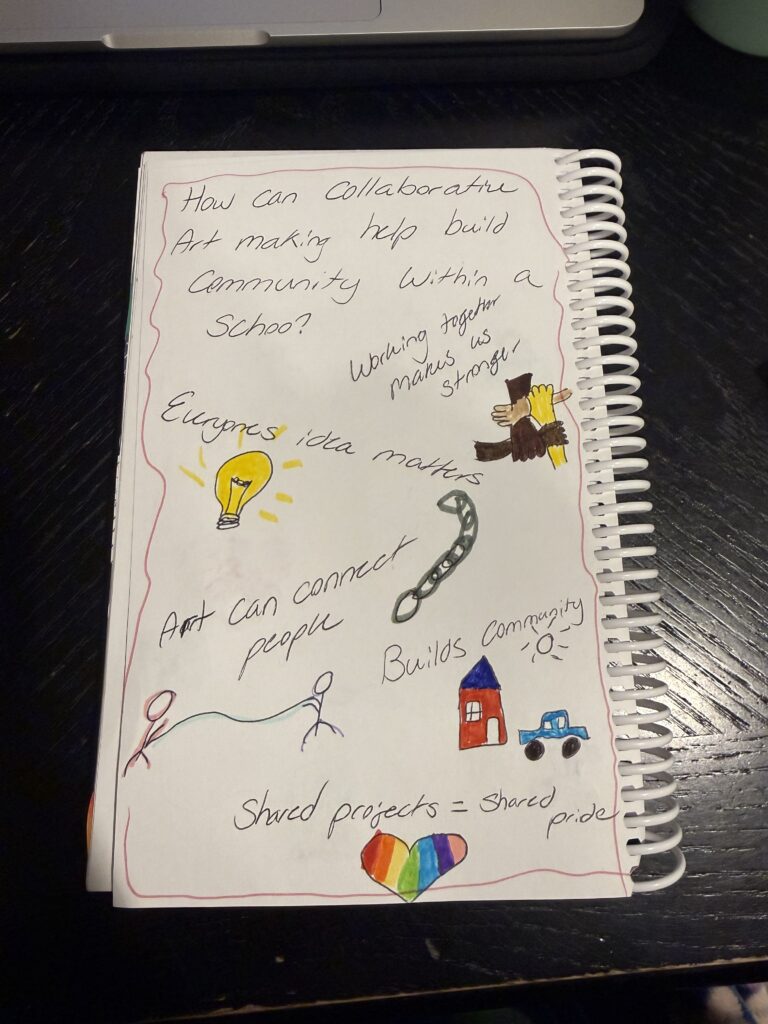 How can Collaborative
Art making help build
Community Within a
Schoo?
Working together
makes us
stronger
Everyones idea matters
Art can connect
people
Builds Community
Shared projects = Shared
pride